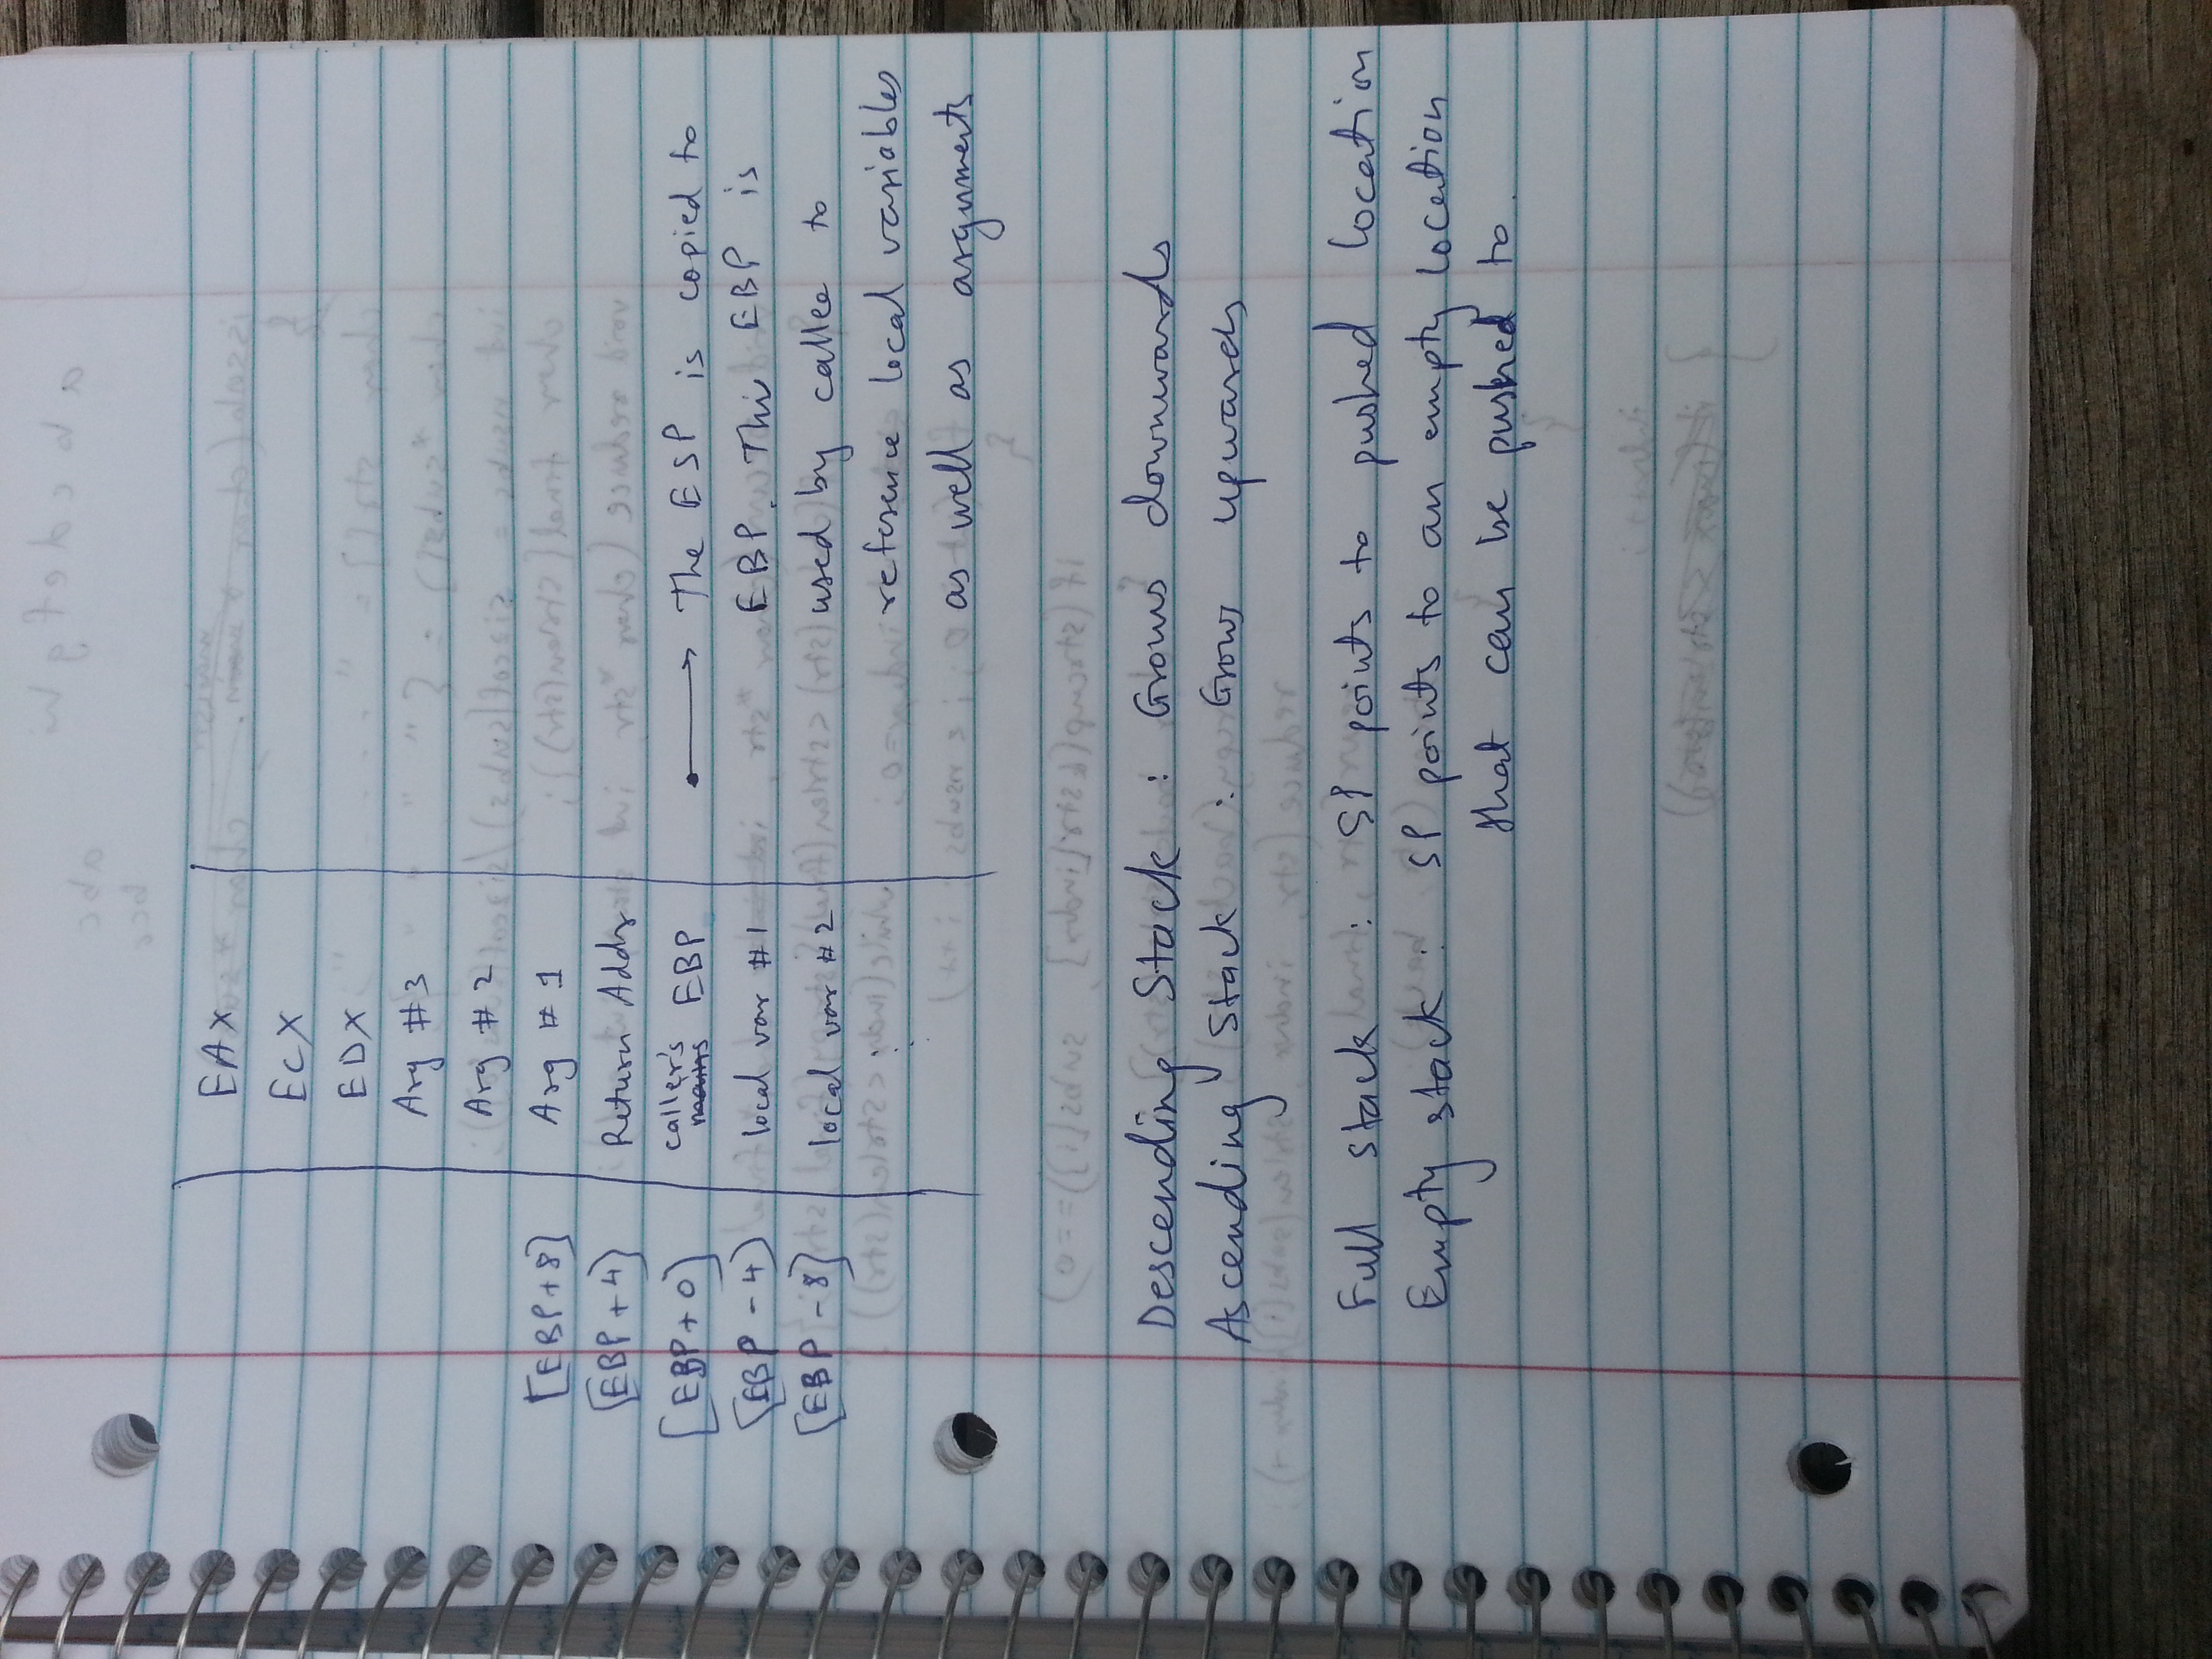 EAX
ECX
EDX
Arg #3
Arg #2
[EBP+8] Arg #1
[EBP+4] Return Addr
[EBP+0] caller's mains EBP → The ESP is copied to
[EBP-4] local var #1 EBP. This EBP is
[EBP-8] local var #2 used by callee to
reference local variables
as well as arguments
Descending Stack : Grows downwards
Ascending Stack : Grows upwards
Full stack : SP points to pushed location
Empty stack : SP points to an empty location
that can be pushed to.